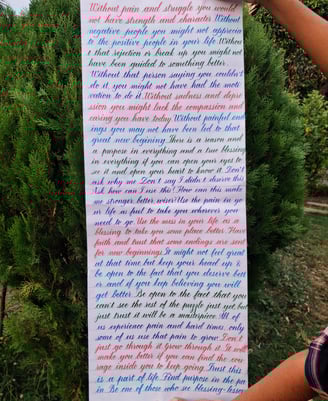 Without pain and struggle you would
not have strength and character Without
negative people you might not apprecia
te the positive people in your life Withou
t that rejection or break up you might not
have been guided to something better
Without that person saying you couldn't
do it, you might not have had the moti
vation to do it Without sadness and depre
ssion you might lack the compassion and
caring you have today Without painful end
ings you may not have been led to that
great new begining There is a reason and
a purpose in everything and a true blessing
in everything if you can open your eyes to
see it and open your heart to know it Don't
ask why me Don't say I didn't deserve this
Ask how can I use this! How can this make
me stronger better wiser Use the pain in yo
ur life as fuel to take you wherever you
need to go Use the mess in your life as a
blessing to take you some place better Have
faith and trust that some endings are sent
for new beginnings It might not feel great
at that time but keep your head up &
be open to the fact that you deserve bett
er and if you keep believing you will
get better Be open to the fact that you
can't see the rest of the puzzle just yet but
just trust it will be a masterpiece All of
us experience pain and hard times only
some of us use that pain to grow Don't
just go through it Grow through it It will
make you better if you can find the cou
rage inside you to keep going Trust this
is a part of life Find purpose in the pa
in Be one of those who see blessing-lesso